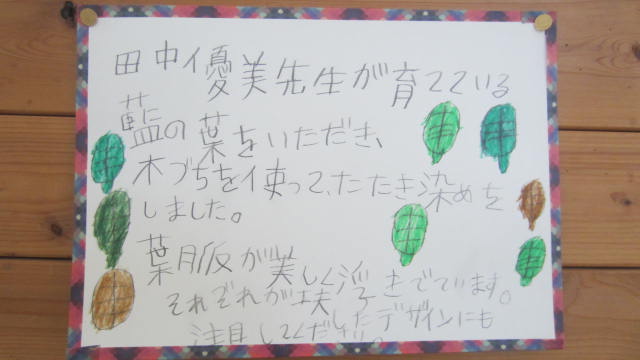 田中優美先生が育てている
藍の葉をいただき、
木づちを使って、たたき染めを
しました。
葉脈が美しく浮きでています。
それぞれが工夫したデザインにも
注目してください。